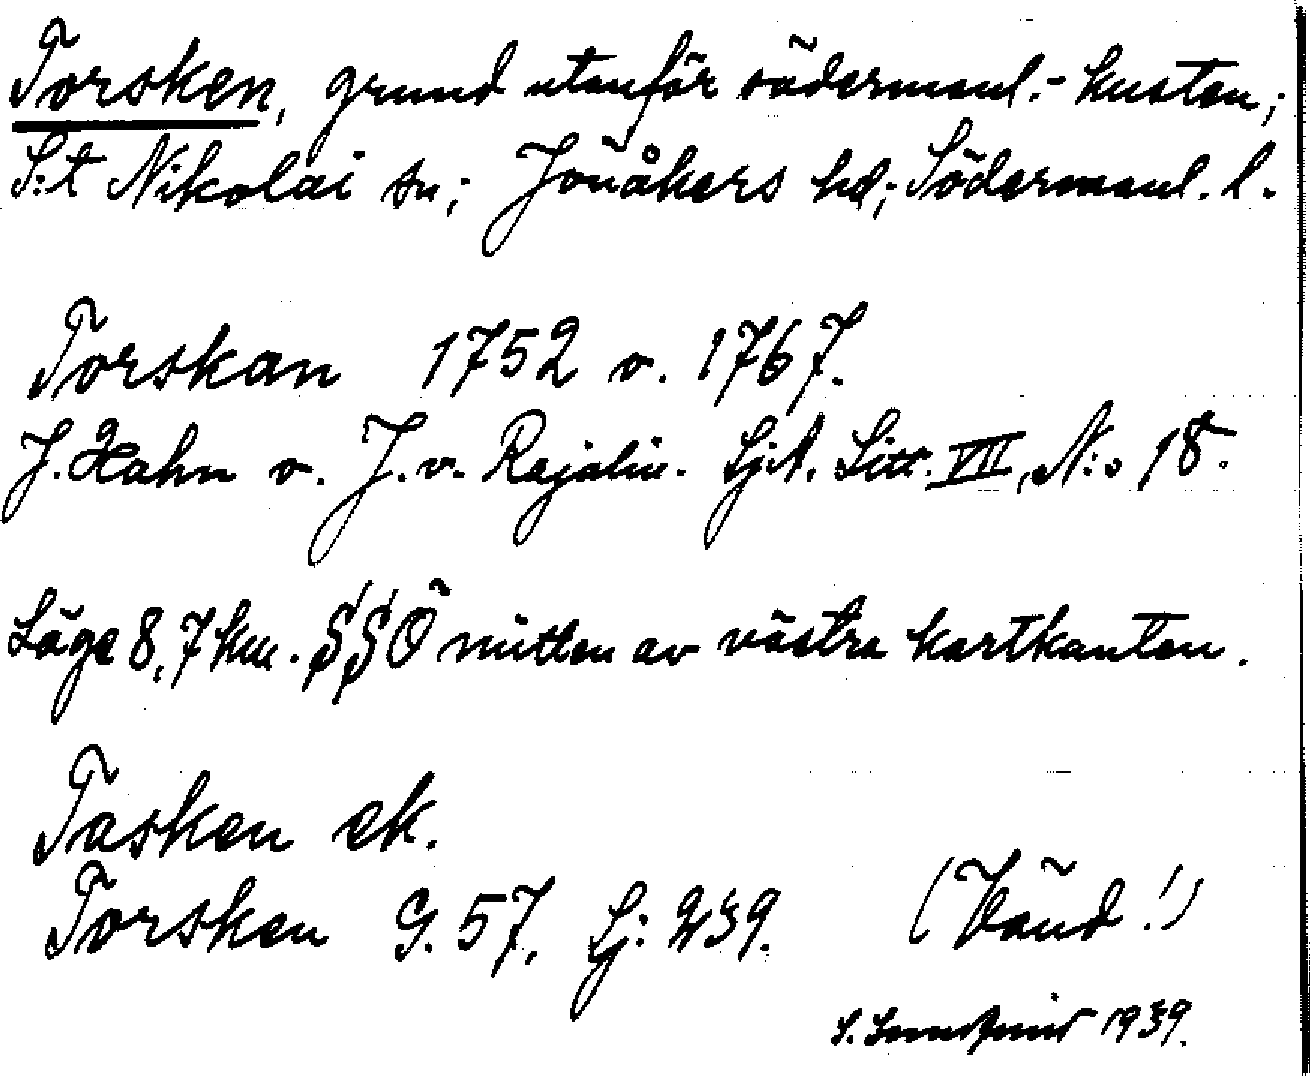 Torsken, grund utanför södermanl.- kusten;
S:t Nikolai sn; Jönåkers hd; Södermanl. l.
Torskan 1752 o. 1767.
J. Hahn o. J. v. Rajalin. Sjk. Litt. VII, N:o 18.
Läge 8,7 km. SSÖ mitten av västra kartkanten.
Tasken ek.
Torsken G. 57. Sj: 239. (Vänd!)
S. 1939.